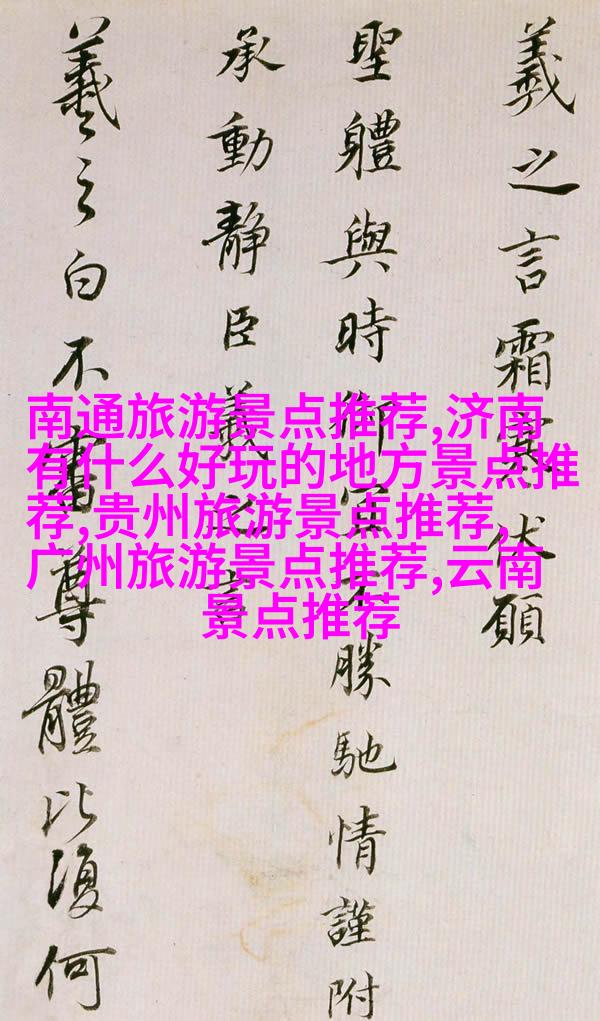 羲之言霜寒伏願
聖體與時御宜不勝馳情謹附
承動靜臣羲之言
羲之白不審尊體比復何
南通旅游景点推荐,济南
有什么好玩的地方景点推
荐,贵州旅游景点推荐,
广州旅游景点推荐,云南
景点推荐